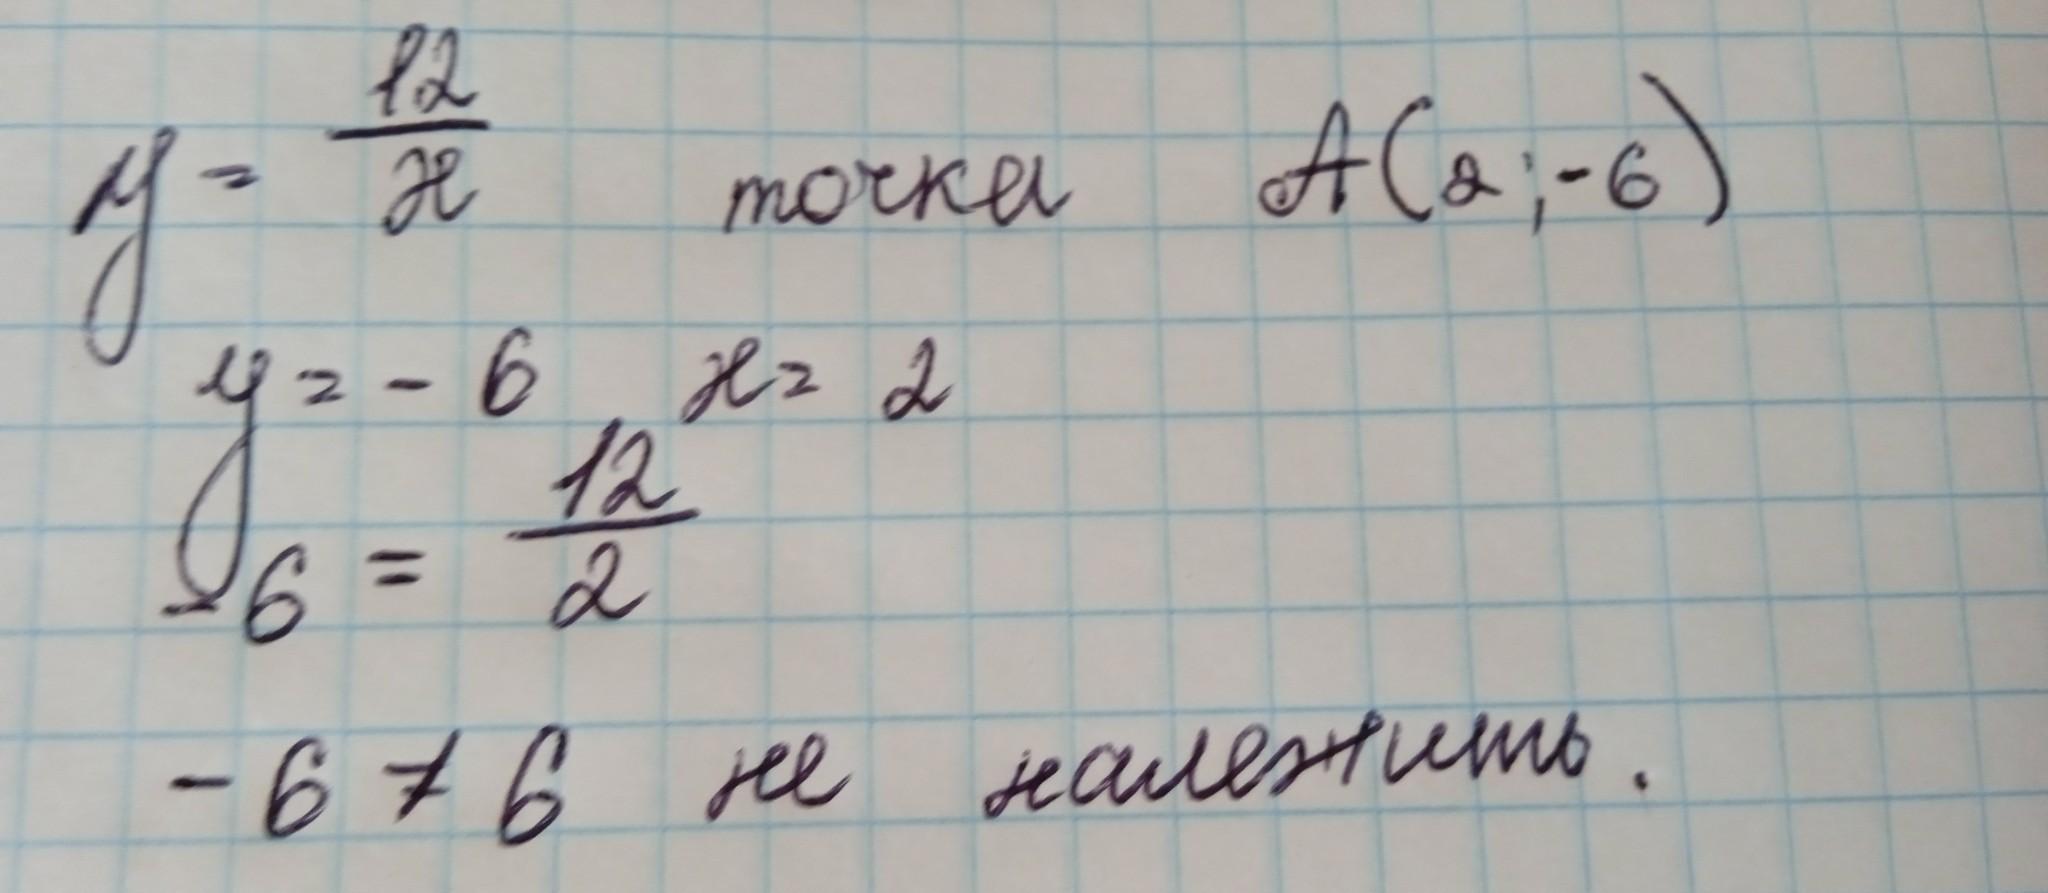 y = 12/x точка A(2;-6)
y = -6 x = 2
-6 = 12/2
-6 ≠ 6 не належить.